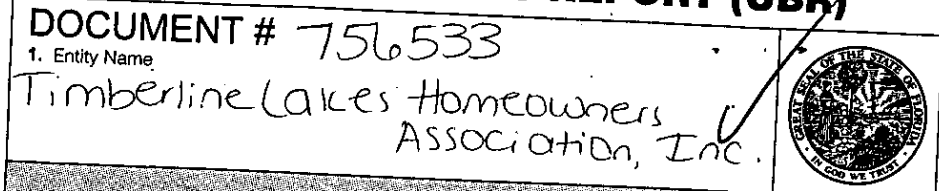 REPORT (UBR)
DOCUMENT # 756533
1. Entity Name
Timberline Lakes Homeowners
Association, Inc.
GREAT SEAL OF THE STATE OF FLORIDA
IN GOD WE TRUST